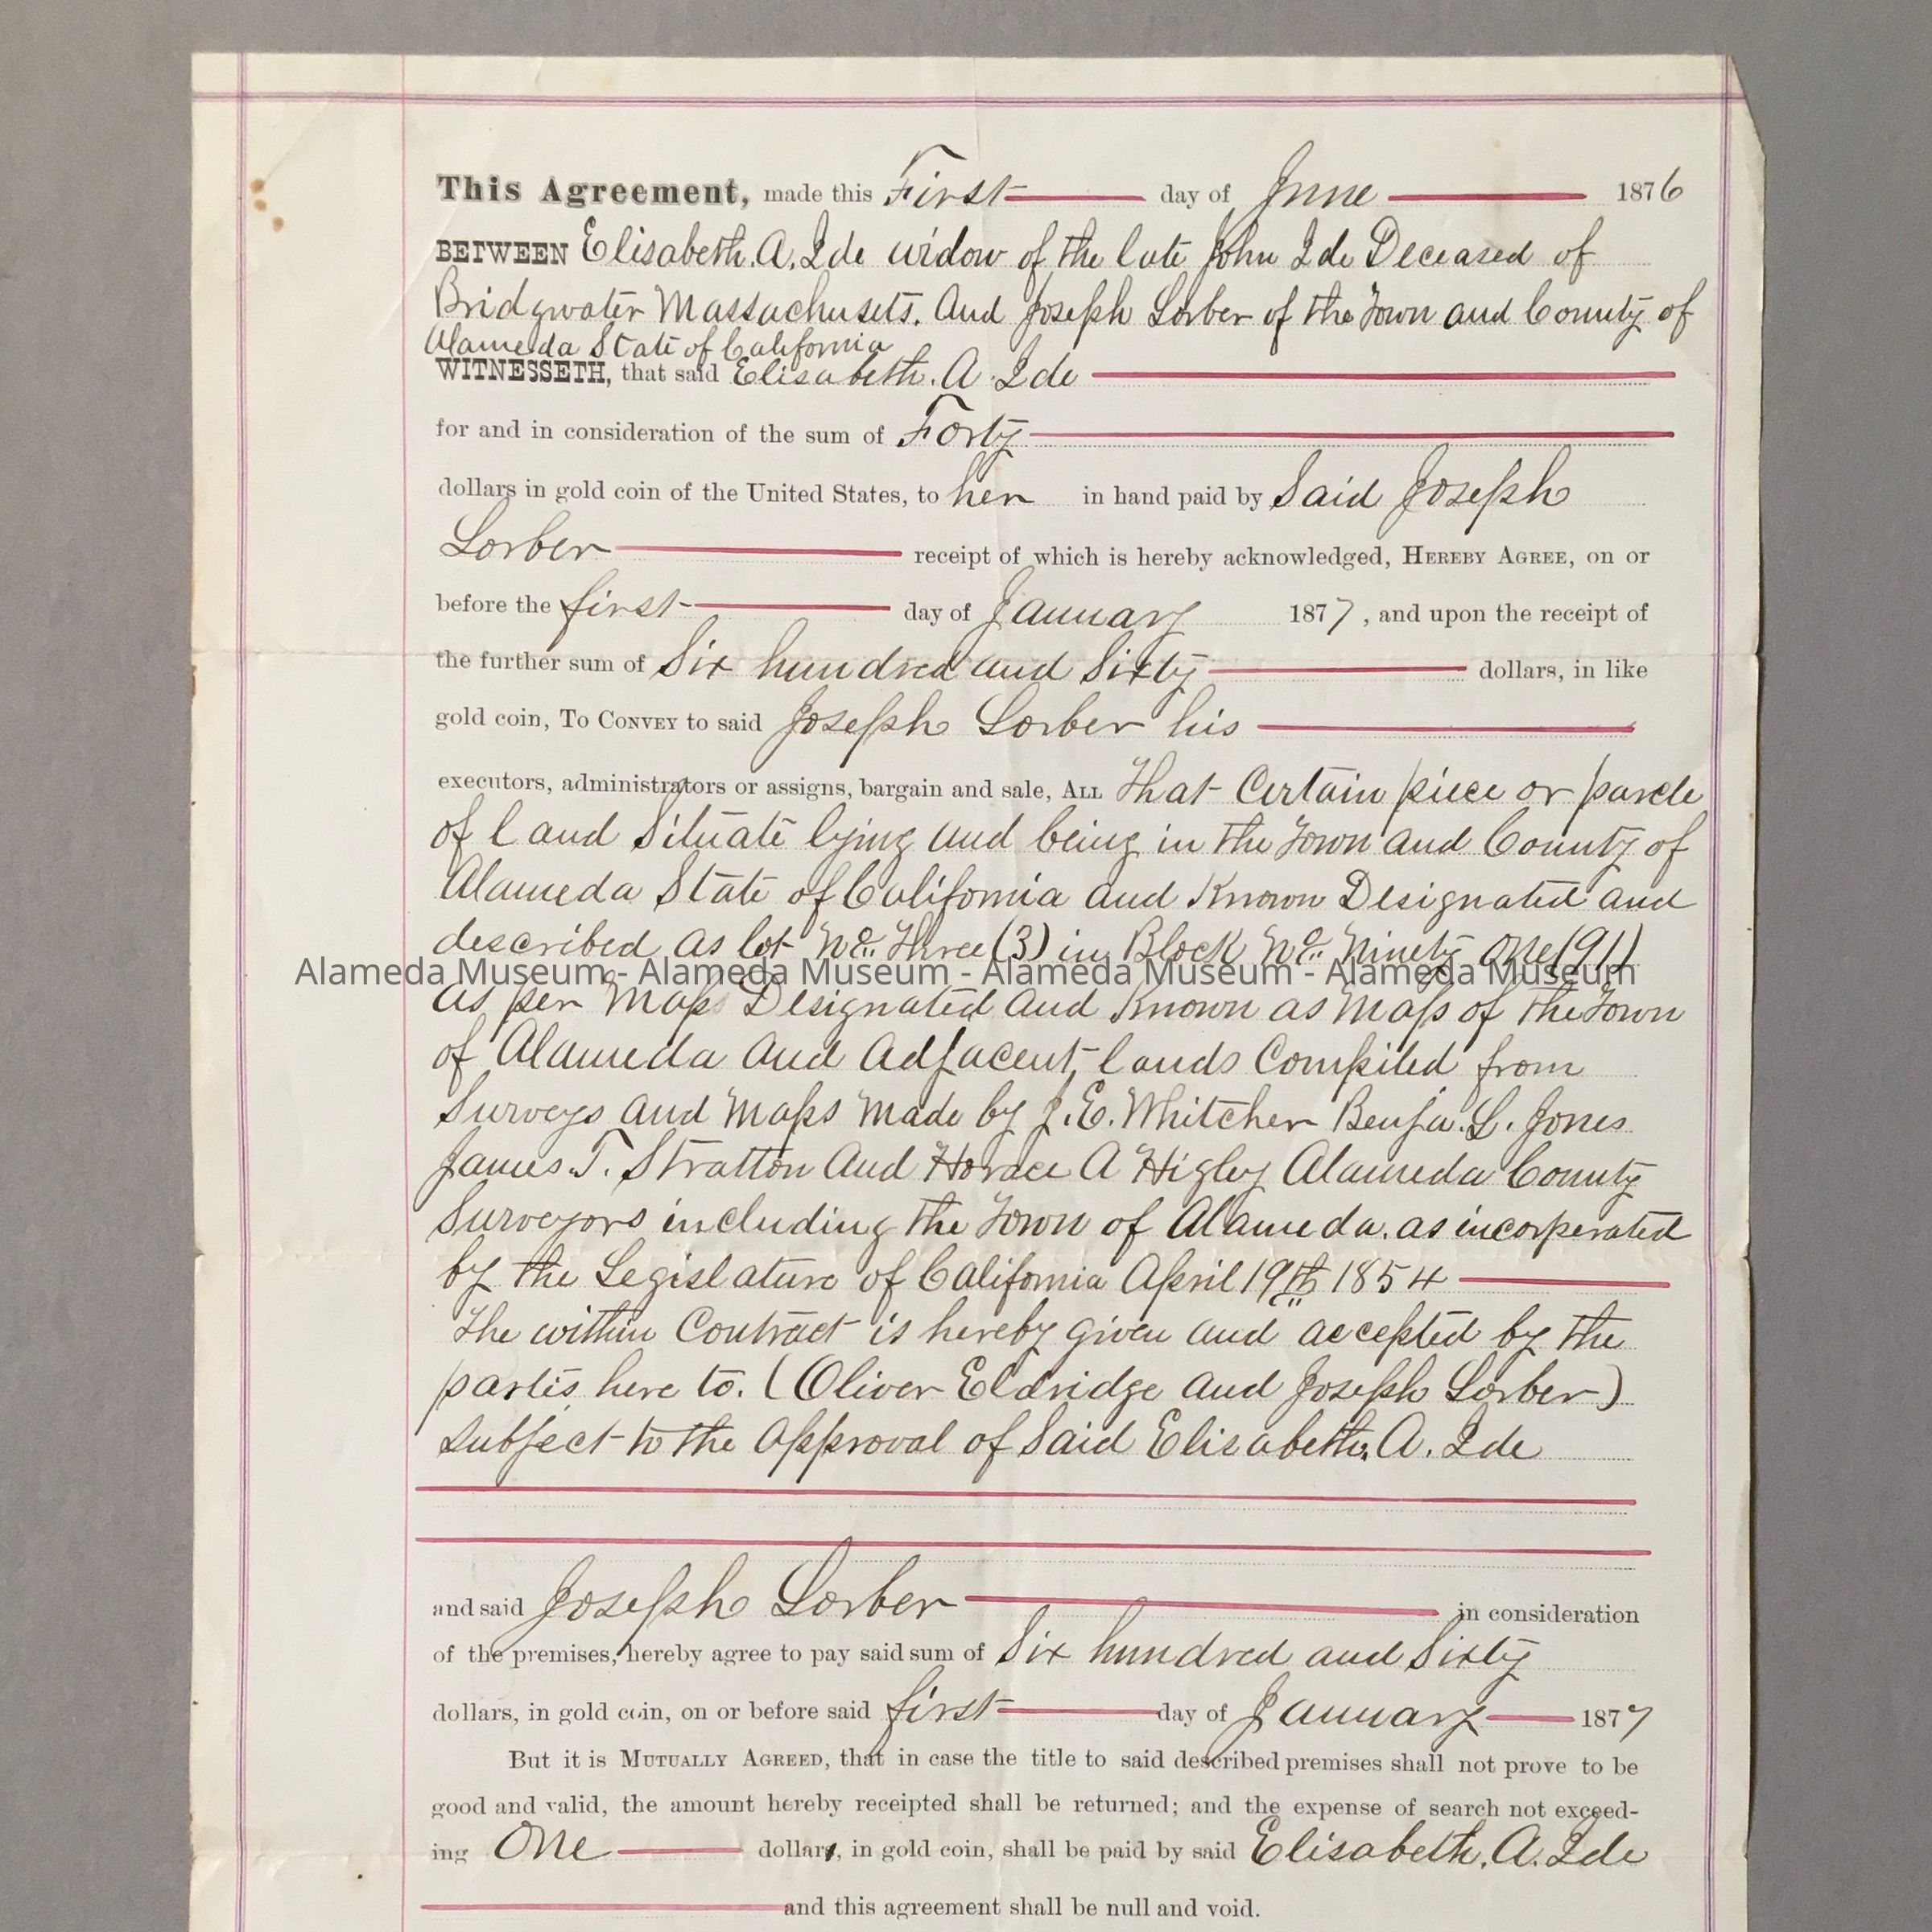 This Agreement, made this First day of June 1876
BETWEEN Elisabeth. A. Ide widow of the late John Ide Deceased of
Bridgwater Massachusets. And Joseph Lorber of the Town and County of
Alameda State of California
WITNESSETH, that said Elisabeth. A. Ide
for and in consideration of the sum of Forty
dollars in gold coin of the United States, to her in hand paid by Said Joseph
Lorber receipt of which is hereby acknowledged, HEREBY AGREE, on or
before the first day of January 1877, and upon the receipt of
the further sum of Six hundred and Sixty dollars, in like
gold coin, TO CONVEY to said Joseph Lorber his
executors, administrators or assigns, bargain and sale, ALL That Certain piece or parcle
of land Situate lying and being in the Town and County of
Alameda State of California and Known Designated and
described as lot No. Three (3) in Block No. Ninety One (91)
Alameda Museum - Alameda Museum - Alameda Museum - Alameda Museum
as per Map Designated and Known as Map of the Town
of Alameda and Adjacent, lands Compiled from
Surveys and Maps Made by J. E. Whitcher Benja. L. Jones
James T. Stratton And Horace A Higley Alameda County
Surveyors including the Town of Alameda. as incorperated
by the Legislature of California April 19th 1854
The within Contract is hereby given and accepted by the
partis here to. (Oliver Eldridge and Joseph Lorber)
subject to the Approval of Said Elisabeth. A. Ide
and said Joseph Lorber in consideration
of the premises, hereby agree to pay said sum of Six hundred and Sixty
dollars, in gold coin, on or before said first day of January 1877
But it is MUTUALLY AGREED, that in case the title to said described premises shall not prove to be
good and valid, the amount hereby receipted shall be returned; and the expense of search not exceed-
ing One dollar, in gold coin, shall be paid by said Elisabeth. A. Ide
and this agreement shall be null and void.